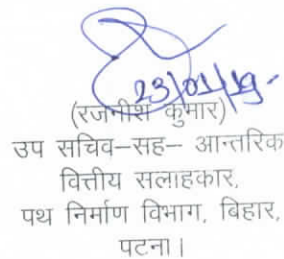 23/01/19-
(रजनीश कुमार)
उप सचिव–सह– आन्तरिक
वित्तीय सलाहकार,
पथ निर्माण विभाग, बिहार,
पटना।